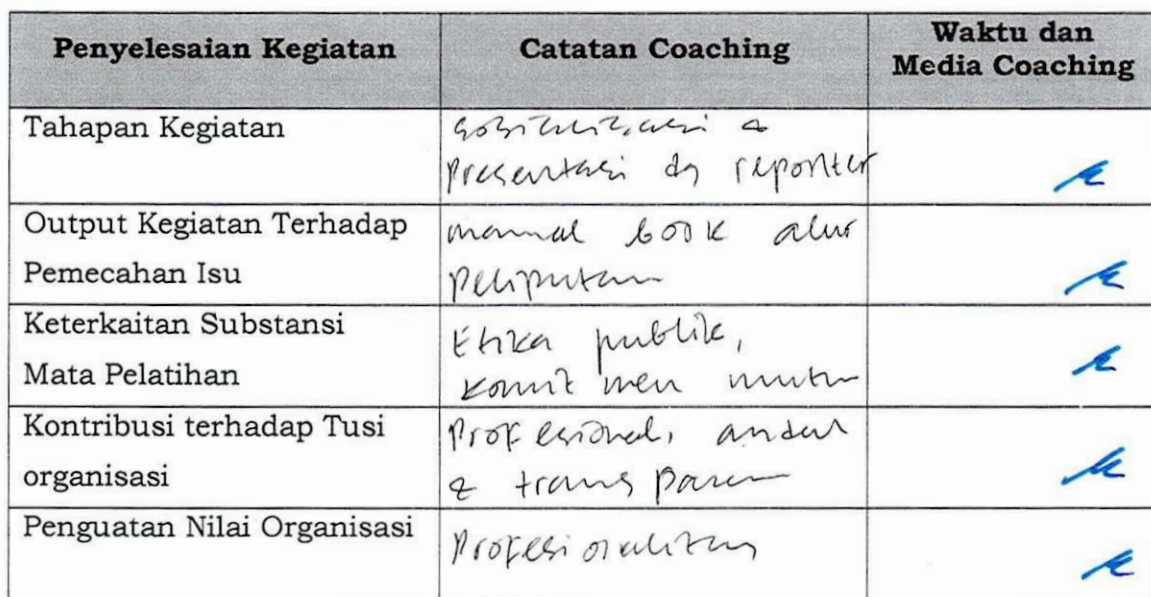 Penyelesaian Kegiatan
Catatan Coaching
Waktu dan
Media Coaching
Tahapan Kegiatan
sosialisasi &
presentasi dg reporter
Output Kegiatan Terhadap
Pemecahan Isu
manual book alur
peliputan
Keterkaitan Substansi
Mata Pelatihan
Etika publik,
komitmen mutu
Kontribusi terhadap Tusi
organisasi
Profesional, andal
& transparan
Penguatan Nilai Organisasi
Profesionalitas